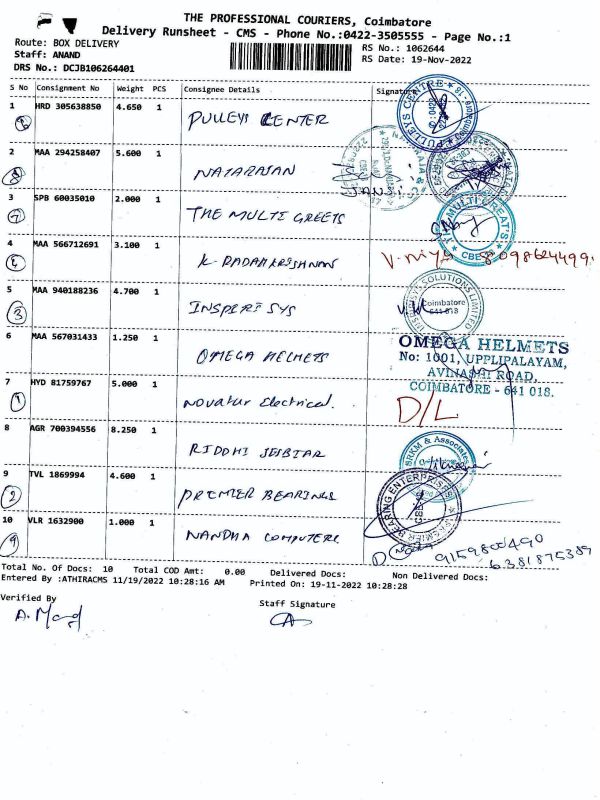 THE PROFESSIONAL COURIERS, Coimbatore
Delivery Runsheet - CMS - Phone No.:0422-3505555 - Page No.:1
Route: BOX DELIVERY
RS No.: 1062644
Staff: ANAND
RS Date: 19-Nov-2022
DRS No.: DCJB106264401
S No Consignment No Weight PCS Consignee Details Signature
1 HRD 305638850 4.650 1 PULLEYS CENTER
2 MAA 294258407 5.600 1 NATARAJAN
3 SPB 60035010 2.000 1 THE MULTI GREETS
7
4 MAA 566712691 3.100 1 K. 8098624499
5 MAA 940188236 4.700 1 INSPERISYS
SOLUTIONS LIMITED
Coimbatore
641 018
3
6 MAA 567031433 1.250 1 OMEGA HELMETS
OMEGA HELMETS
No: 1001, UPPLIPALAYAM,
AVINASHI ROAD,
COIMBATORE - 641 018.
7 HYD 81759767 5.000 1 Novatur Electrical. D/L
1
8 AGR 700394556 8.250 1 RIDDHI
SRKM & Associates
9 TVL 1869994 4.600 1 PREMIER BEARINGS
BEARING ENTERPRISES
2
10 VLR 1632900 1.000 1 NANDHA COMPUTERS
9
9159800490
6381875389
Total No. Of Docs: 10 Total COD Amt: 0.00 Delivered Docs: Non Delivered Docs:
Entered By :ATHIRACMS 11/19/2022 10:28:16 AM Printed On: 19-11-2022 10:28:28
Verified By
Staff Signature